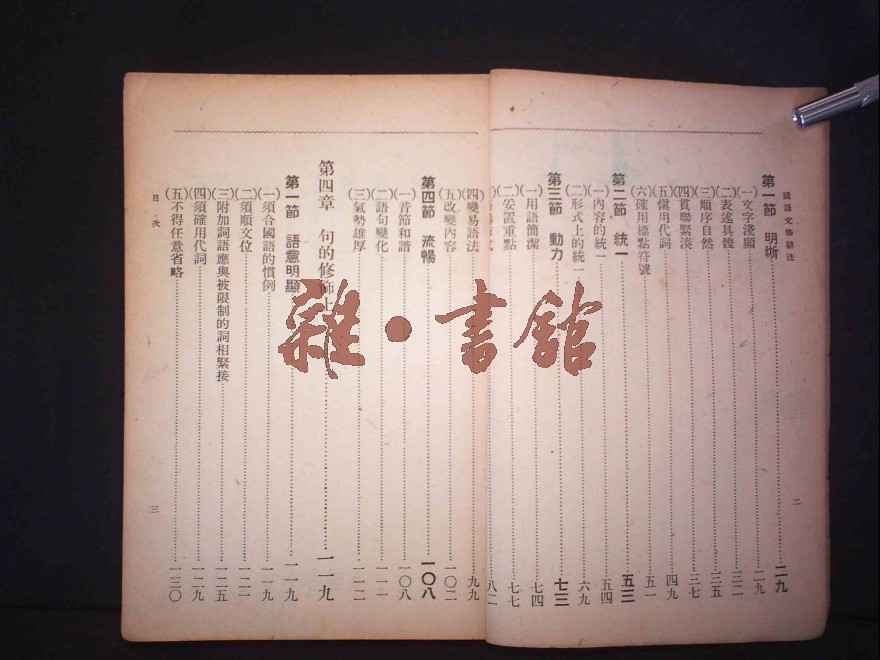 國語文修辭法
第一節 明晰……二九
(一)文字淺顯……二九
(二)表達具體……三二
(三)順序自然……三五
(四)貫聯緊湊……三七
(五)愼用代詞……四九
(六)確用標點符號……五一
第二節 統一……五三
(一)內容的統一……五四
(二)形式上的統一……六九
第三節 動力……七三
(一)用語簡潔……七四
(二)安置重點……七七
式……八二
二
(四)變易語法……九九
(五)改變內容……一〇二
第四節 流暢……一〇八
(一)音節和諧……一〇八
(二)語句變化……一一一
(三)氣勢雄厚……一一二
第四章 句的修飾上……一一九
第一節 語意明顯……一一九
(一)須合國語的慣例……一一九
(二)須順文位……一二二
(三)附加詞語應與被限制的詞相緊接……一二五
(四)須確用代詞……一二九
(五)不得任意省略……一三〇
目次
三
雜·書舘